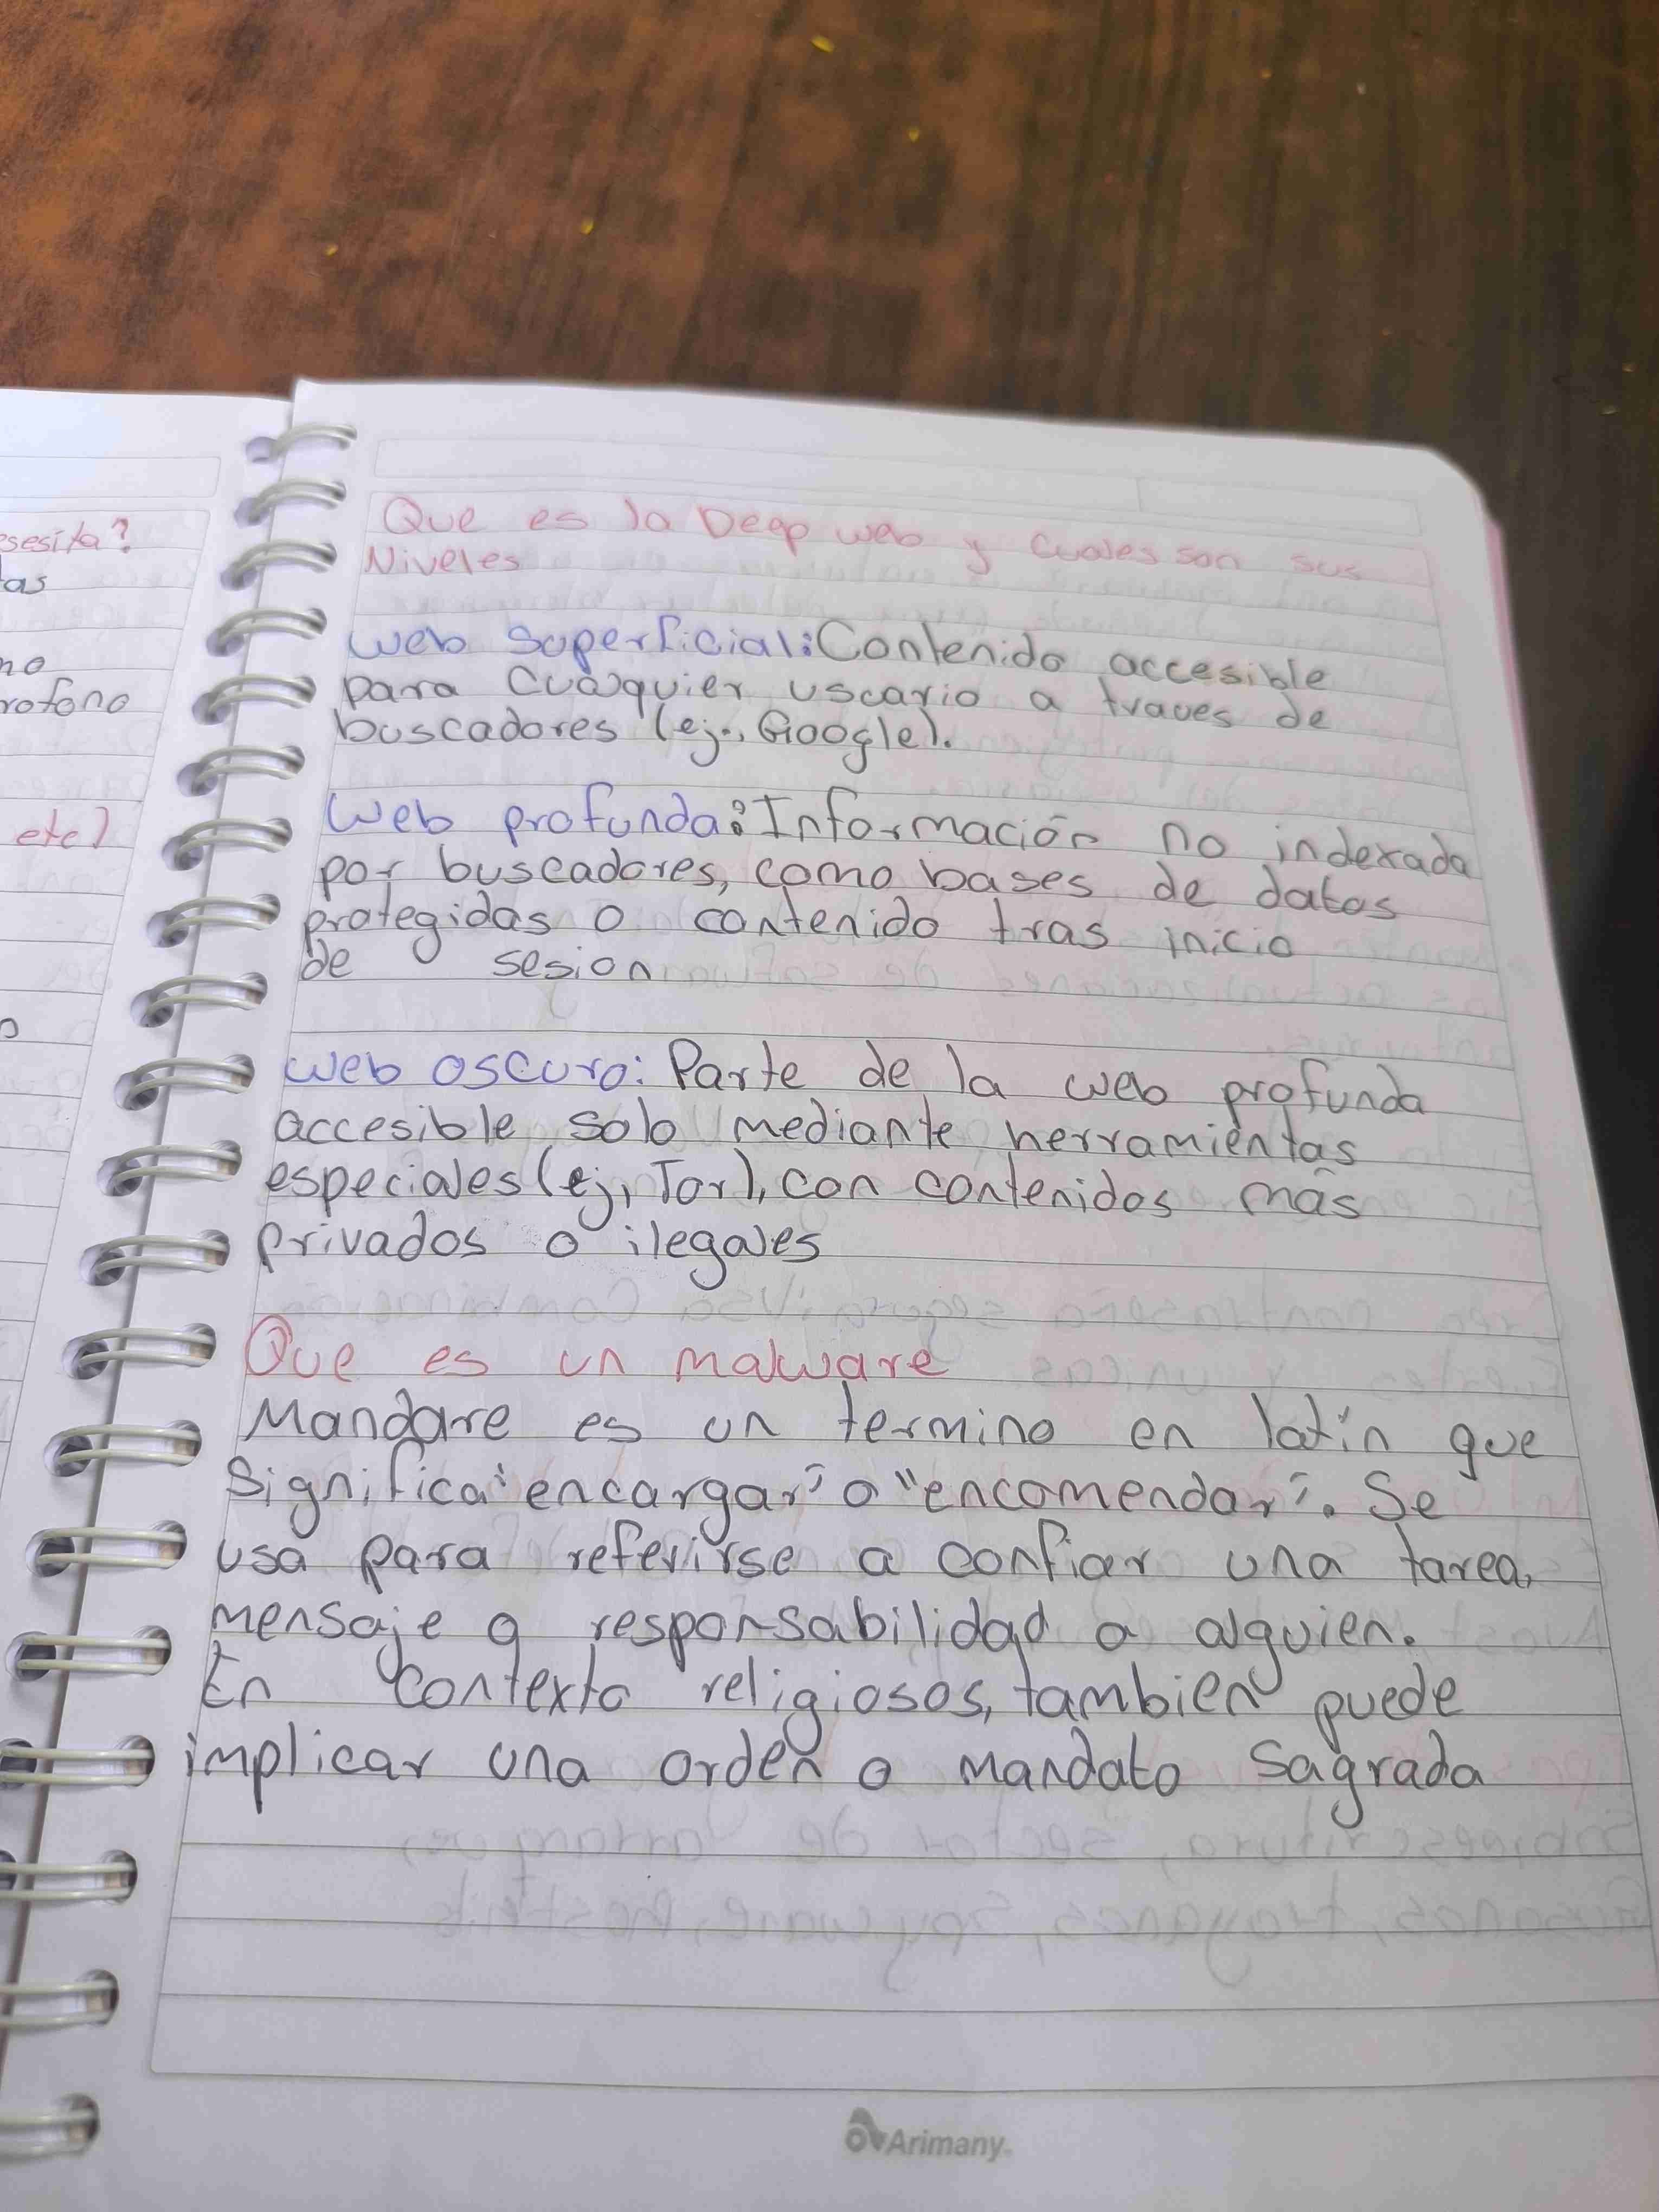 esesita?
as
no
rofono
etc)
o
Que es la Deep web y Cuales son sus
Niveles
web Superficial: Contenido accesible
para Cualquier uscario a traves de
buscadores (ej., Google).
Web profunda: Información no indexada
por buscadores, como bases de datos
protegidas o contenido tras inicio
de sesion
web oscuro: Parte de la web profunda
accesible solo mediante herramientas
especiales (ej, Tor), con contenidos más
privados o ilegales
Que es un malware
Mandare es un termino en latín que
Significa "encargar" o "encomendar". Se
usa para referirse a confiar una tarea,
mensaje o responsabilidad a alguien.
En contexto religiosos, tambien puede
implicar una orden o mandato Sagrada
Arimany